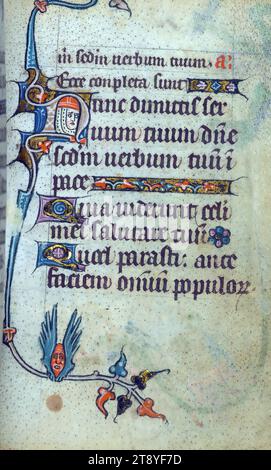 in sedm uerbum tuum. a.
Ecce conpleta sunt
Nunc dimittis ser
uum tuum dne
sedm uerbum tuū i
pace
Quia uiderunt culi
mei salutare tuū
Quod parasti: ante
faciem omniū populoꝝ
alamy
Image ID: 2T8YF7D
www.alamy.com